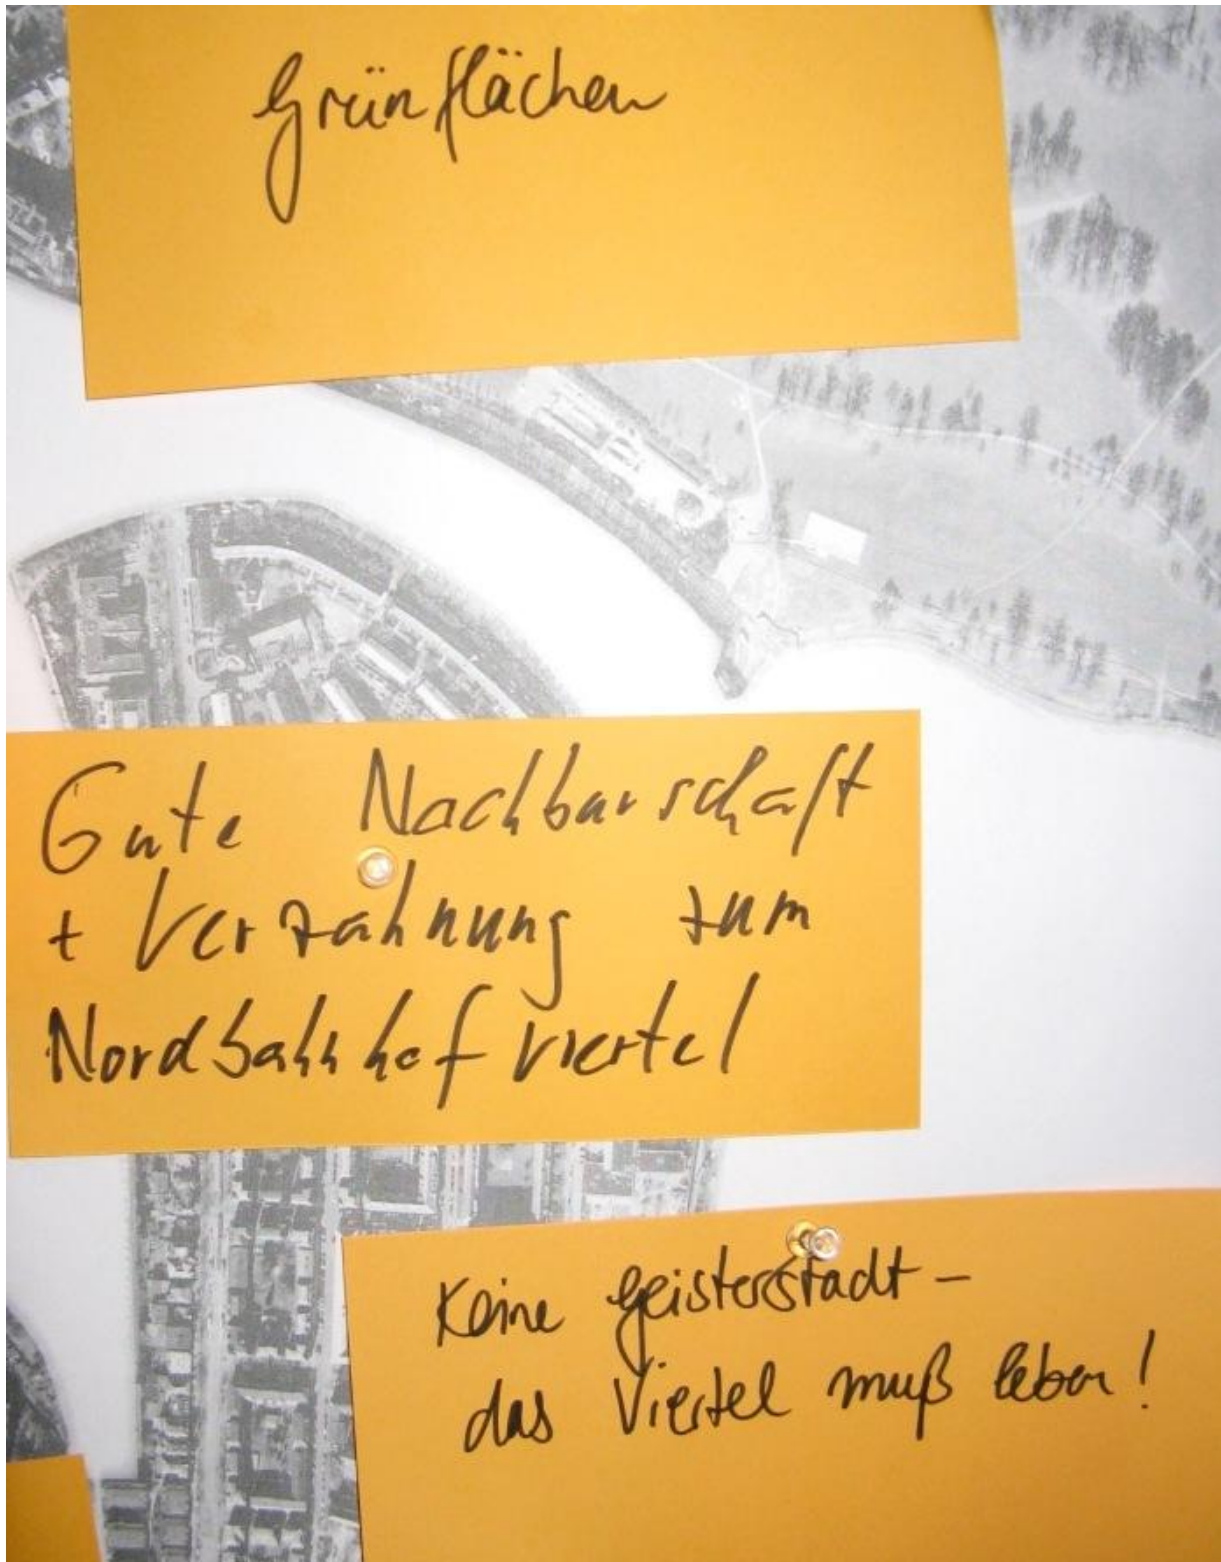 Grünflächen
Gute Nachbarschaft
+ Verzahnung zum
Nordbahnhofviertel
Keine Geisterstadt –
das Viertel muß leben!